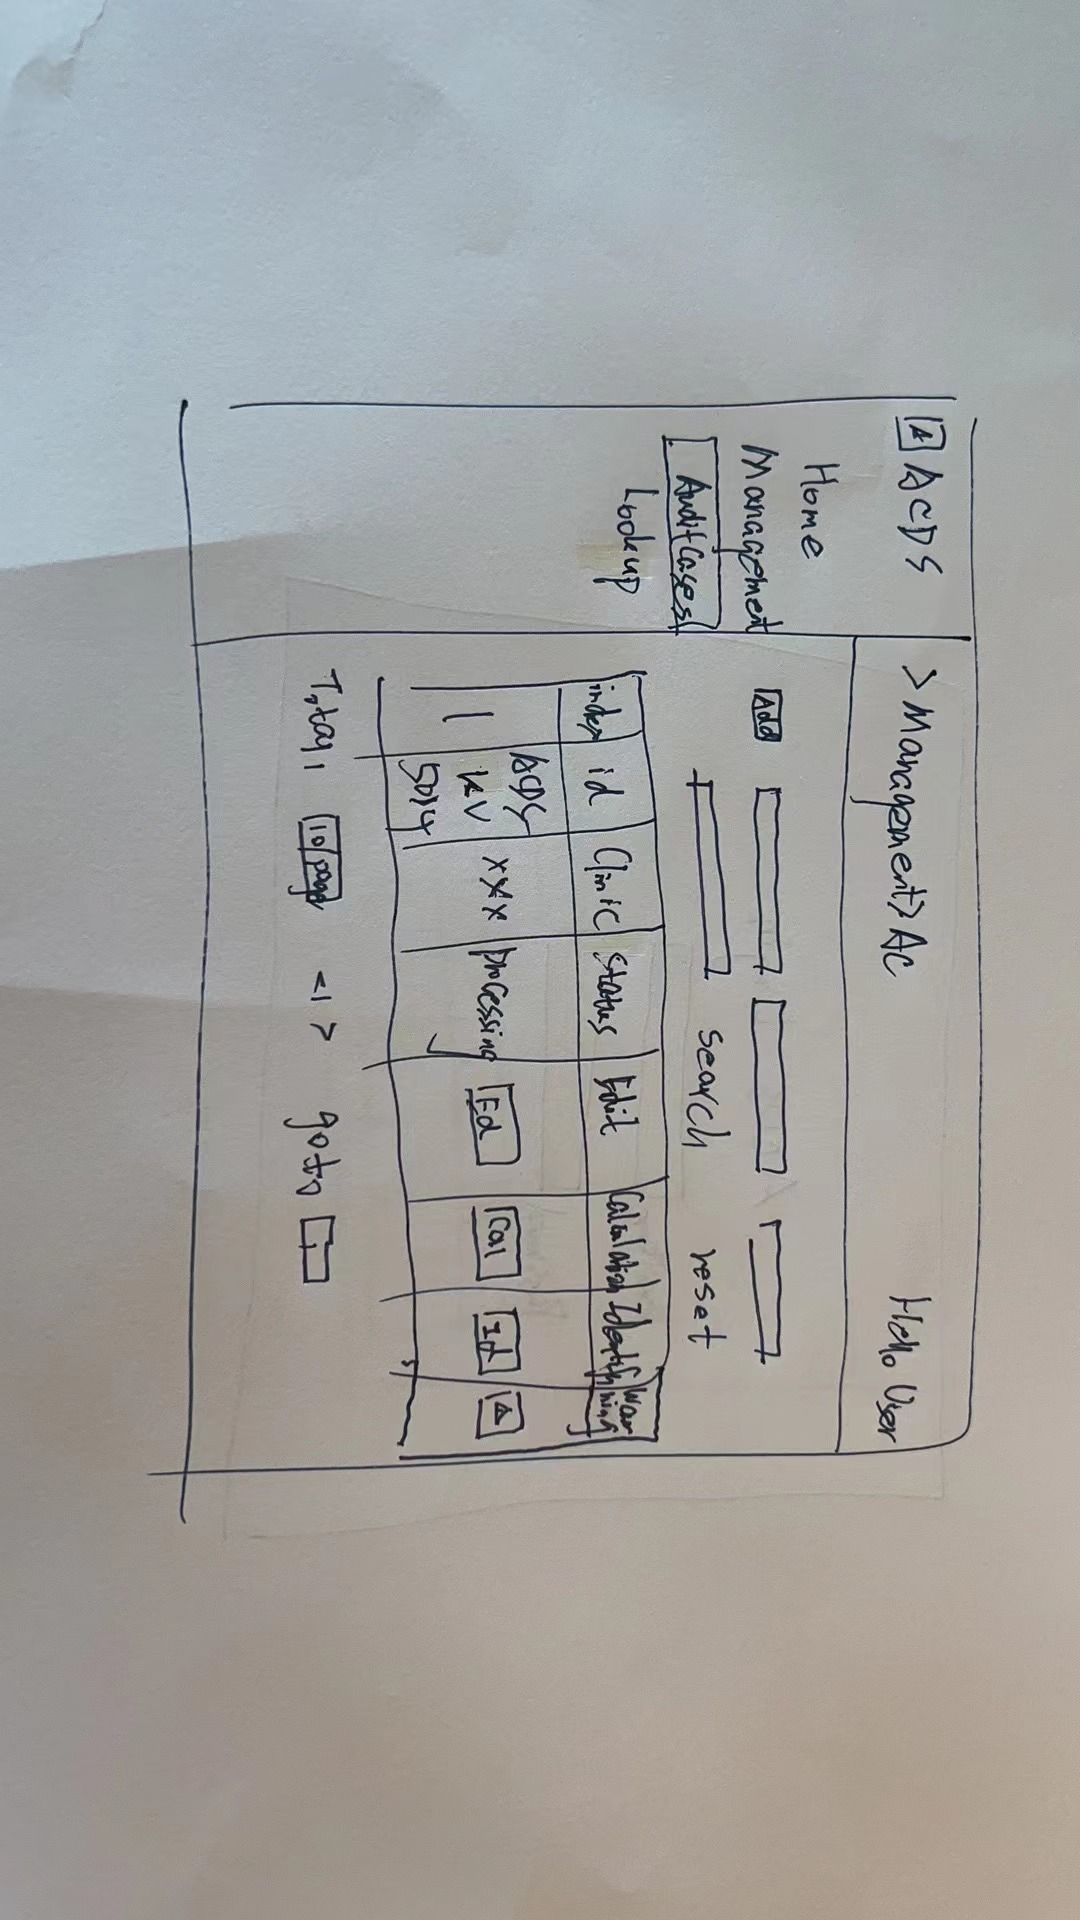 A ACDS
Home
Management
Audit Cases
Lookup
> Management > AC
Hello User
Add
search
reset
index id Clinic status Edit Calculation Identify Warning
1 xxx processing Ed Cal Id
ACDS
Total 1 10/page < 1 > goto